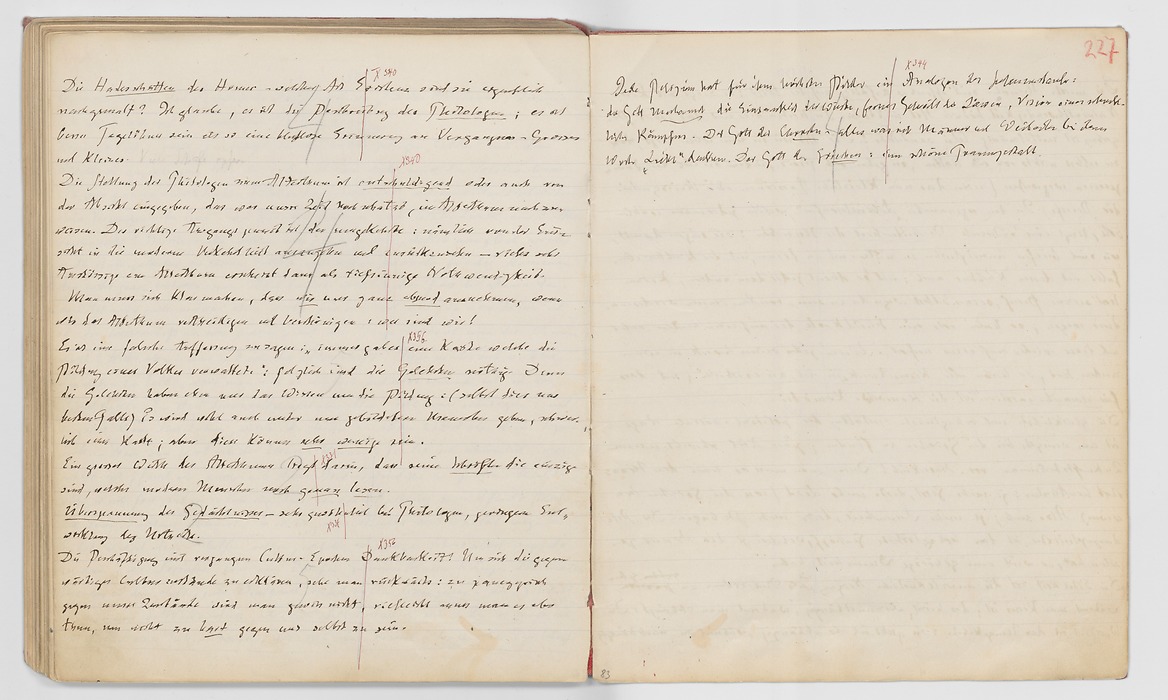 X 340
Die Hadesschatten des Homer – welcher Art Existenz sind sie eigentlich
nachgemalt? Ich glaube, es ist die Beschreibung des Philologen; es ist
besser Taglöhner sein als so eine blutlose Erinnerung an Vergangenes – Grosses
und Kleines.
X 340
Die Stellung des Philologen zum Alterthum ist entschuldigend oder auch von
der Absicht eingegeben, das was unsre Zeit hochschätzt, im Alterthum nachzu-
weisen. Der richtige Ausgangspunct ist der umgekehrte: nämlich von der Ein-
sicht in die moderne Verkehrtheit auszugehen und zurückzusehen – vieles sehr
Anstössige am Alterthum erscheint dann als tiefsinnige Nothwendigkeit.
Man muss sich klar machen, dass wir uns ganz absurd ausnehmen, wenn
wir das Alterthum vertheidigen und beschönigen: was sind wir!
X 356
Es ist eine falsche Auffassung zu sagen: „immer gab es eine Kaste welche die
Bildung eines Volkes verwaltete“; folglich sind die Gelehrten nöthig. Denn
die Gelehrten haben eben nur das Wissen um die Bildung: (selbst dies nur
besten Falls) Es wird wohl auch unter uns gebildetere Menschen geben, schwer-
lich eine Kaste; aber diese können sehr wenige sein.
Ein grosser Werth des Alterthums liegt darin, dass seine Schriften die einzigen
sind, welche moderne Menschen noch genau lesen.
Überspannung des Gedächtnisses – sehr gewöhnlich bei Philologen, geringere Ent-
wicklung des Urtheils.
Die Beschäftigung mit vergangenen Cultur-Epochen Dankbarkeit? Um sich die gegen-
wärtigen Culturzustände zu erklären, sehe man rückwärts: zu panegyrisch
gegen unsre Zustände wird man gewiss nicht, vielleicht muss man es aber
thun, um nicht zu hart gegen uns selbst zu sein.
227
X 344
Jede Religion hat für ihre höchsten Bilder ein Analogon in
der Gott Muhameds die Einsamkeit der Wüste, fernes Gebrüll des Löwen, Vision eines schreck-
lichen Kämpfers. Der Gott der Christen – alles was sich Männer und Weiber bei dem
Worte „Liebe“ denken. Der Gott der Griechen: eine schöne Traumgestalt.
83